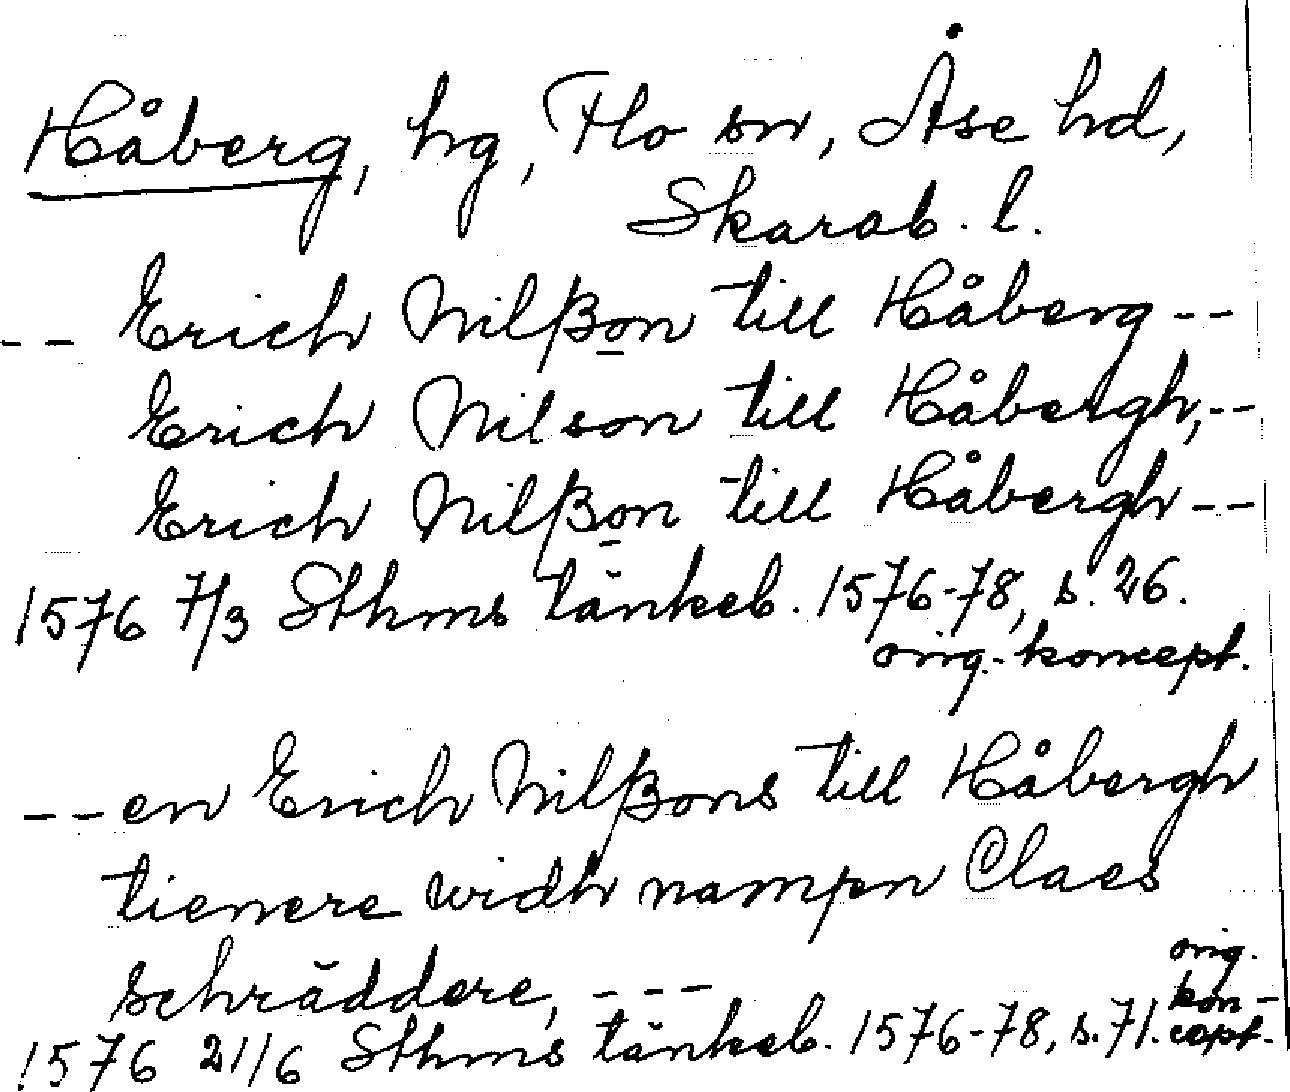 Håberg, hg, Flo sn, Åse hd,
Skarab. l.
-- Erich Nilßon till Håberg --
Erich Nilson till Håbergh, --
Erich Nilßon till Håbergh --
1576 7/3 Sthms tänkeb. 1576-78, s. 26.
orig.-koncept.
-- en Erich Nilßons till Håbergh
tienere widh nampn Claes
schräddere, ---
1576 21/6 Sthms tänkeb. 1576-78, s. 71. orig. kon-
cept.